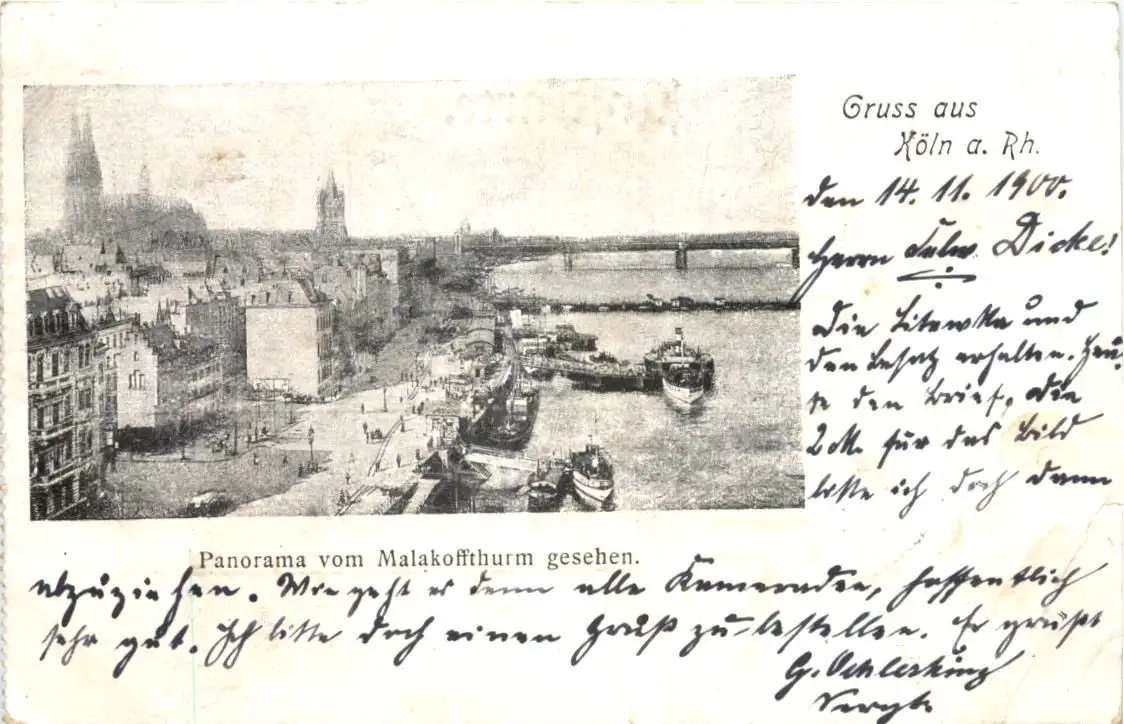 Gruss aus
Köln a. Rh.
den 14. 11. 1900.
Herrn Dicke!
Die Litewka und
den Besatz erhalten.
den Brief, die
2 M. für das Bild
bitte ich doch dann
Panorama vom Malakoffthurm gesehen.
abzuziehen. Wie geht es denn alle Kameraden, hoffentlich
sehr gut. Ich bitte doch einen Gruß zu bestellen. Er grüßt
G. Oehlerking
Sergt.